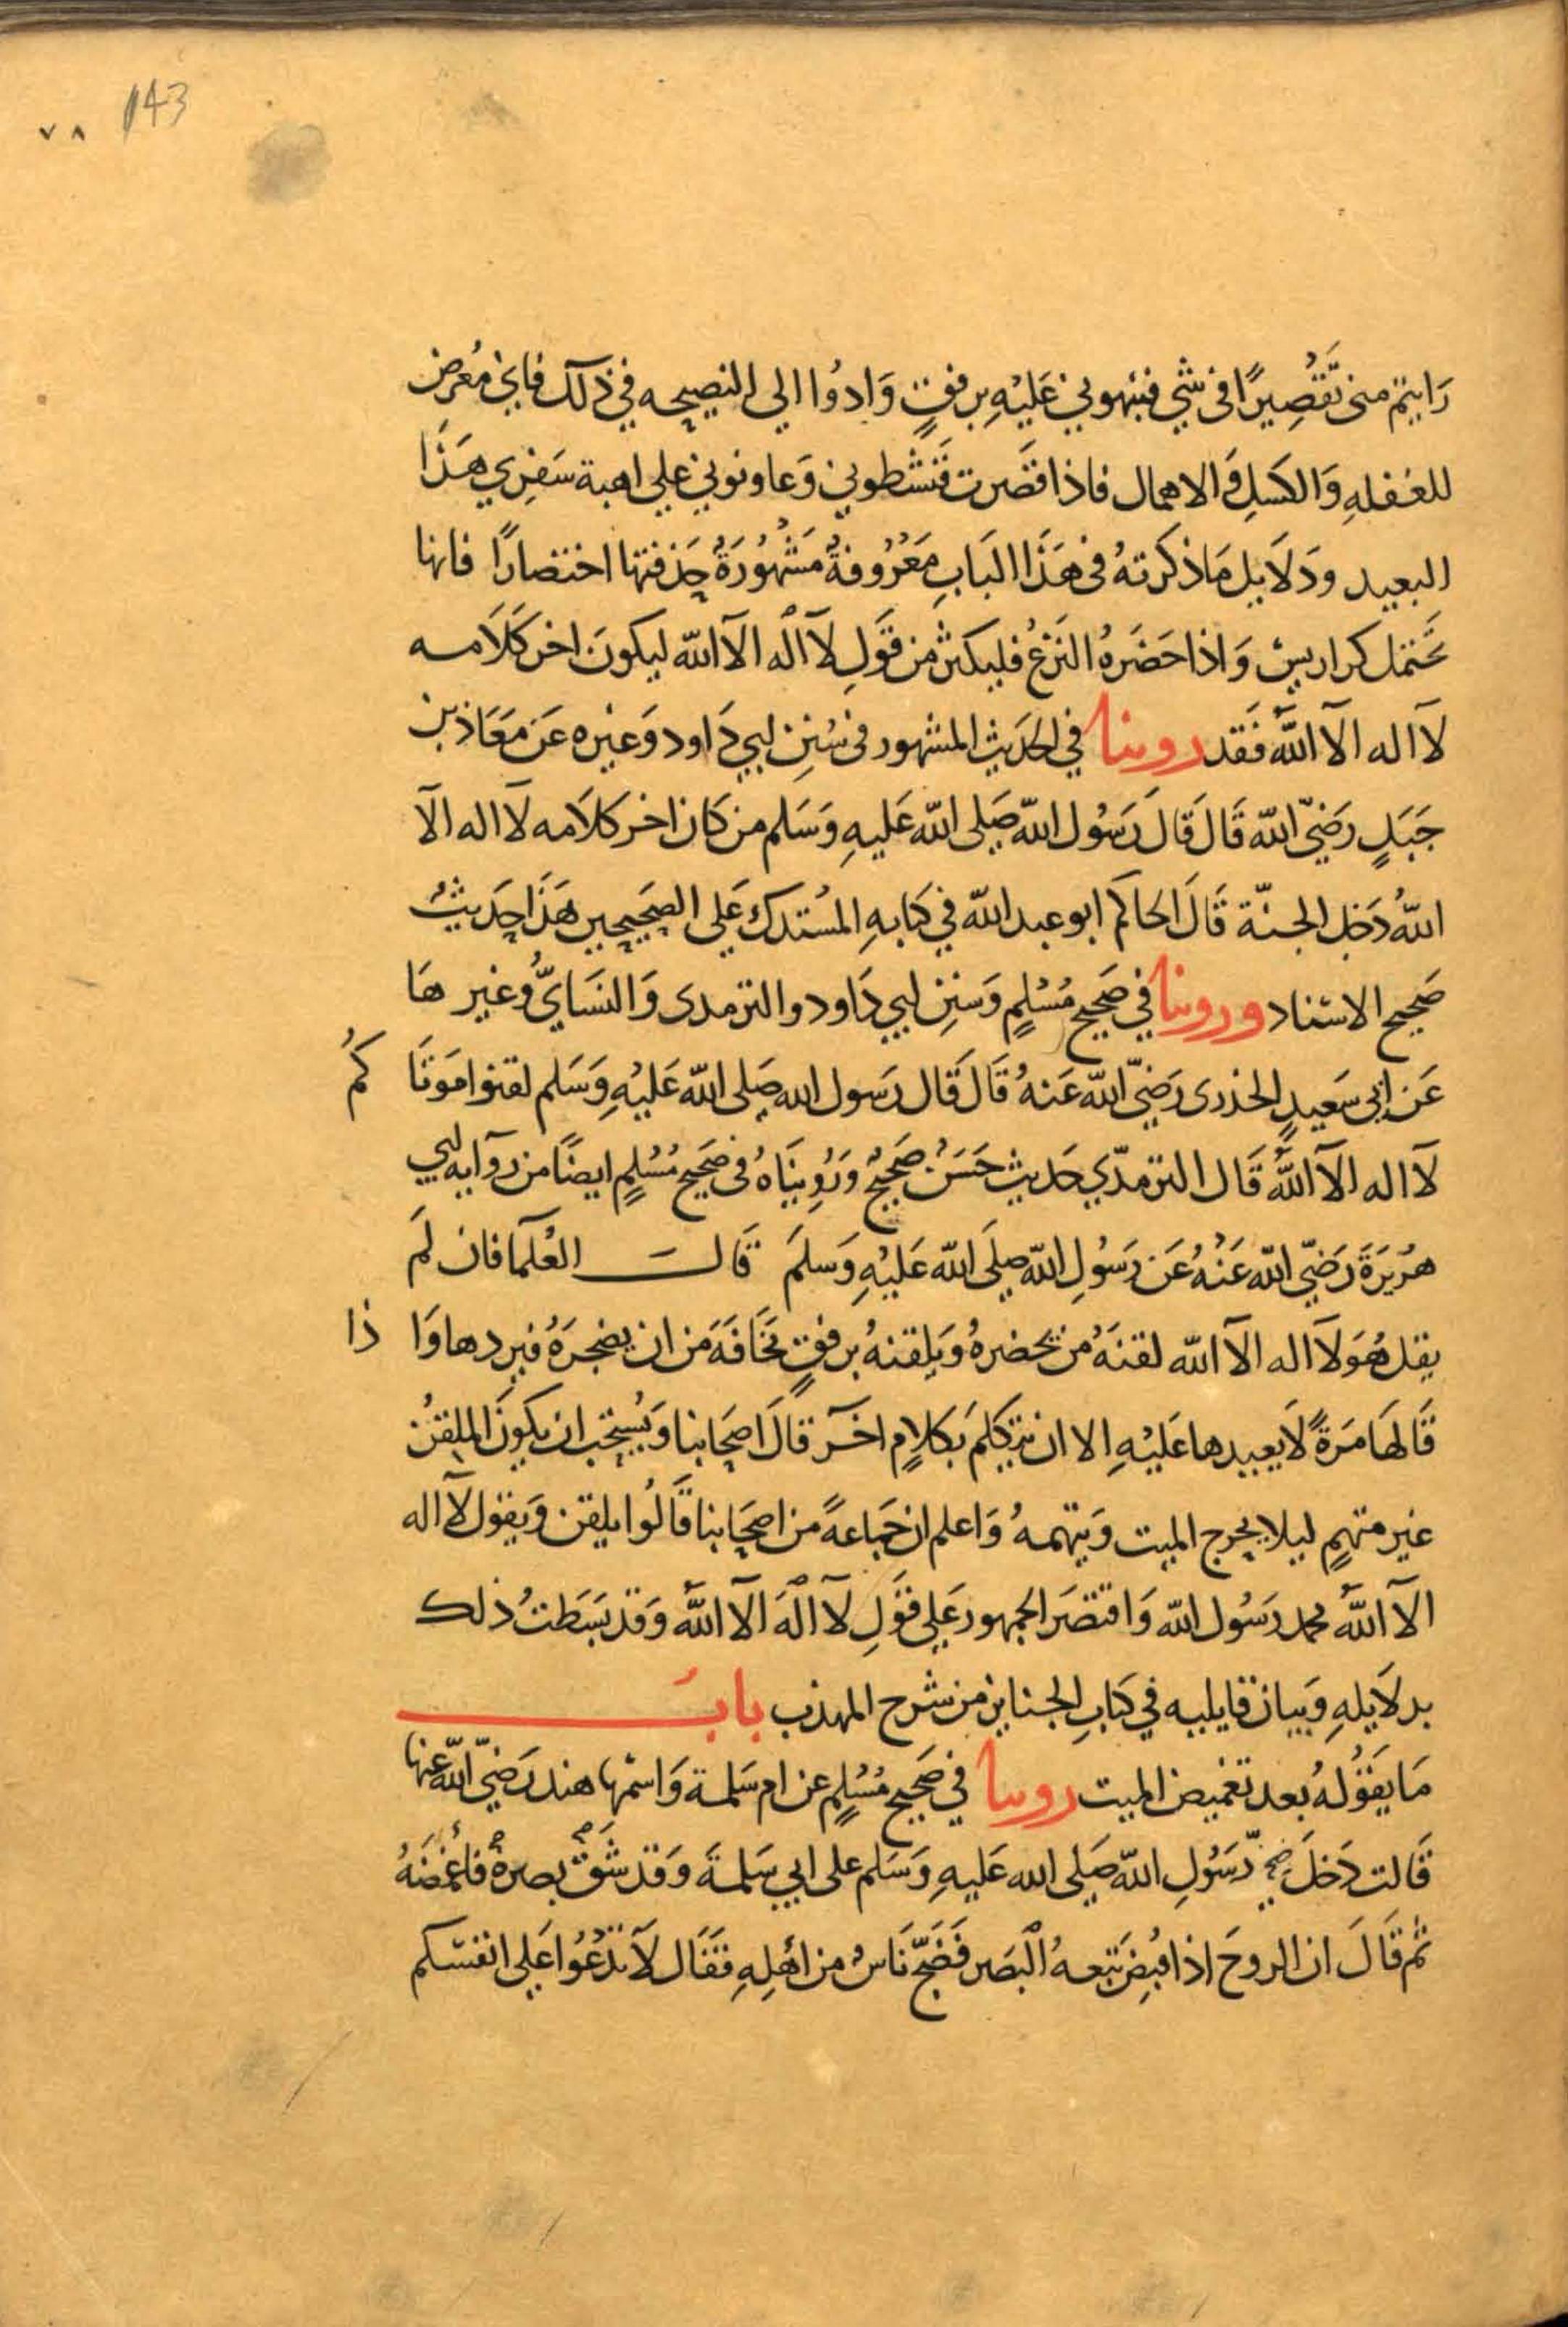 143 ٧٨
رَايتم منى تَّقْصِيرًا فى شي فنبهوني عَليْهِ برفقٍ وَادوُا الي النصيحه في ذلك فاني مُعرض
للغفلهِ وَالكسَلِ وَالاهمال فاذا قصَرت فَنشطوني وَعاونوني علي اهبة سَفري هَذَا
البعيد ودَلَايل مَا ذكرتهُ فى هَذَا البَابِ مَعْرُوفةٌ مَشْهُورَةٌ حذفتها اختصَارًا فانها
تحتمل كراريس وَاذا حَضَرهُ النَزعُ فليكثر من قَولِ لآ اله الآ الله ليكونَ اخر كَلَامه
لآ اله الآ اللهُ فَقد روينا في الحَديث المشهور فى سُنن ابي دَاود وَغيره عَن مَعَاذ بن
جَبَلٍ رَضيّ الله قَالَ قَالَ رَسُول الله صَلى الله عَليهِ وَسَلم من كَان اخر كلَامه لآ اله الآ
اللهُ دَخل الجنّة قَالَ الحاكم ابو عبد الله في كتابهِ المُستدرك عَلي الصَحيحين هَذَا حَديثٌ
صَحيح الاسناد وروينا في صَحيح مُسْلمٍ وَسنن ابي دَاود والترمدى وَالنسَايّ وغير هَا
عَن ابي سَعيدٍ الخذرى رَضيّ الله عَنهُ قَالَ قَال رَسول الله صَلى الله عَليْهِ وَسَلم لقنوا مَوتَا كمُ
لآ اله الآ اللهُ قَال الترمدّي حَديث حَسَنٌ صَحيحٌ وَرُوينَاهُ فى صَحيح مُسْلمٍ ايضًا من روَايه ابي
هُريَرَةَ رَضيّ الله عَنْهُ عَن رَسُولِ الله صلَى الله عَليْهِ وَسلمَ قَالَ العُلمَا فان لمَ
يقل هُوَ لآ اله الآ الله لقنَهُ من يَحضرهُ وَيلقنهُ برفقٍ مخَافَةَ من ان يضجرَهُ فيردها وَا ذا
قَالهَا مَرةً لَا يعيدها عَليْهِ الا ان يتكلمَ بكلَامٍ اخَر قالَ اصحَابنا وَيُستحب ان يكونَ الملقنُ
غير متهمٍ ليلا يحرج الميت وَيتهمهُ وَاعلم ان جَماعةً من اصحَابنا قَالُوا يلقن وَيقول لآ اله
الآ اللهُ محمد رَسُول الله وَاقتصَر الجمهور عَلي قَولِ لآ الهَ الآ اللهُ وَقد بَسَطتُ ذلك
بدلَايلهِ وَبيان قايليه في كتابِ الجنايز من شرح المهذب بابَ
مَا يقَوُلهُ بعد تغميض الميت روينا في صَحيح مُسْلمٍ عن ام سَلمة وَاسمْها هند رَضيّ الله عنها
قَالت دَخلَ رَسُولِ الله صَلى الله عَليهِ وَسَلم على ابي سَلمةَ وَقد شَقّ بصرهُ فاغمضَهُ
ثم قَالَ ان الروحَ اذا قبُضَ تبعهُ البَصَر فَضَجّ نَاسٌ من اهْلِهِ فَقَال لَا تدْعُوُا عَلي انفسكم